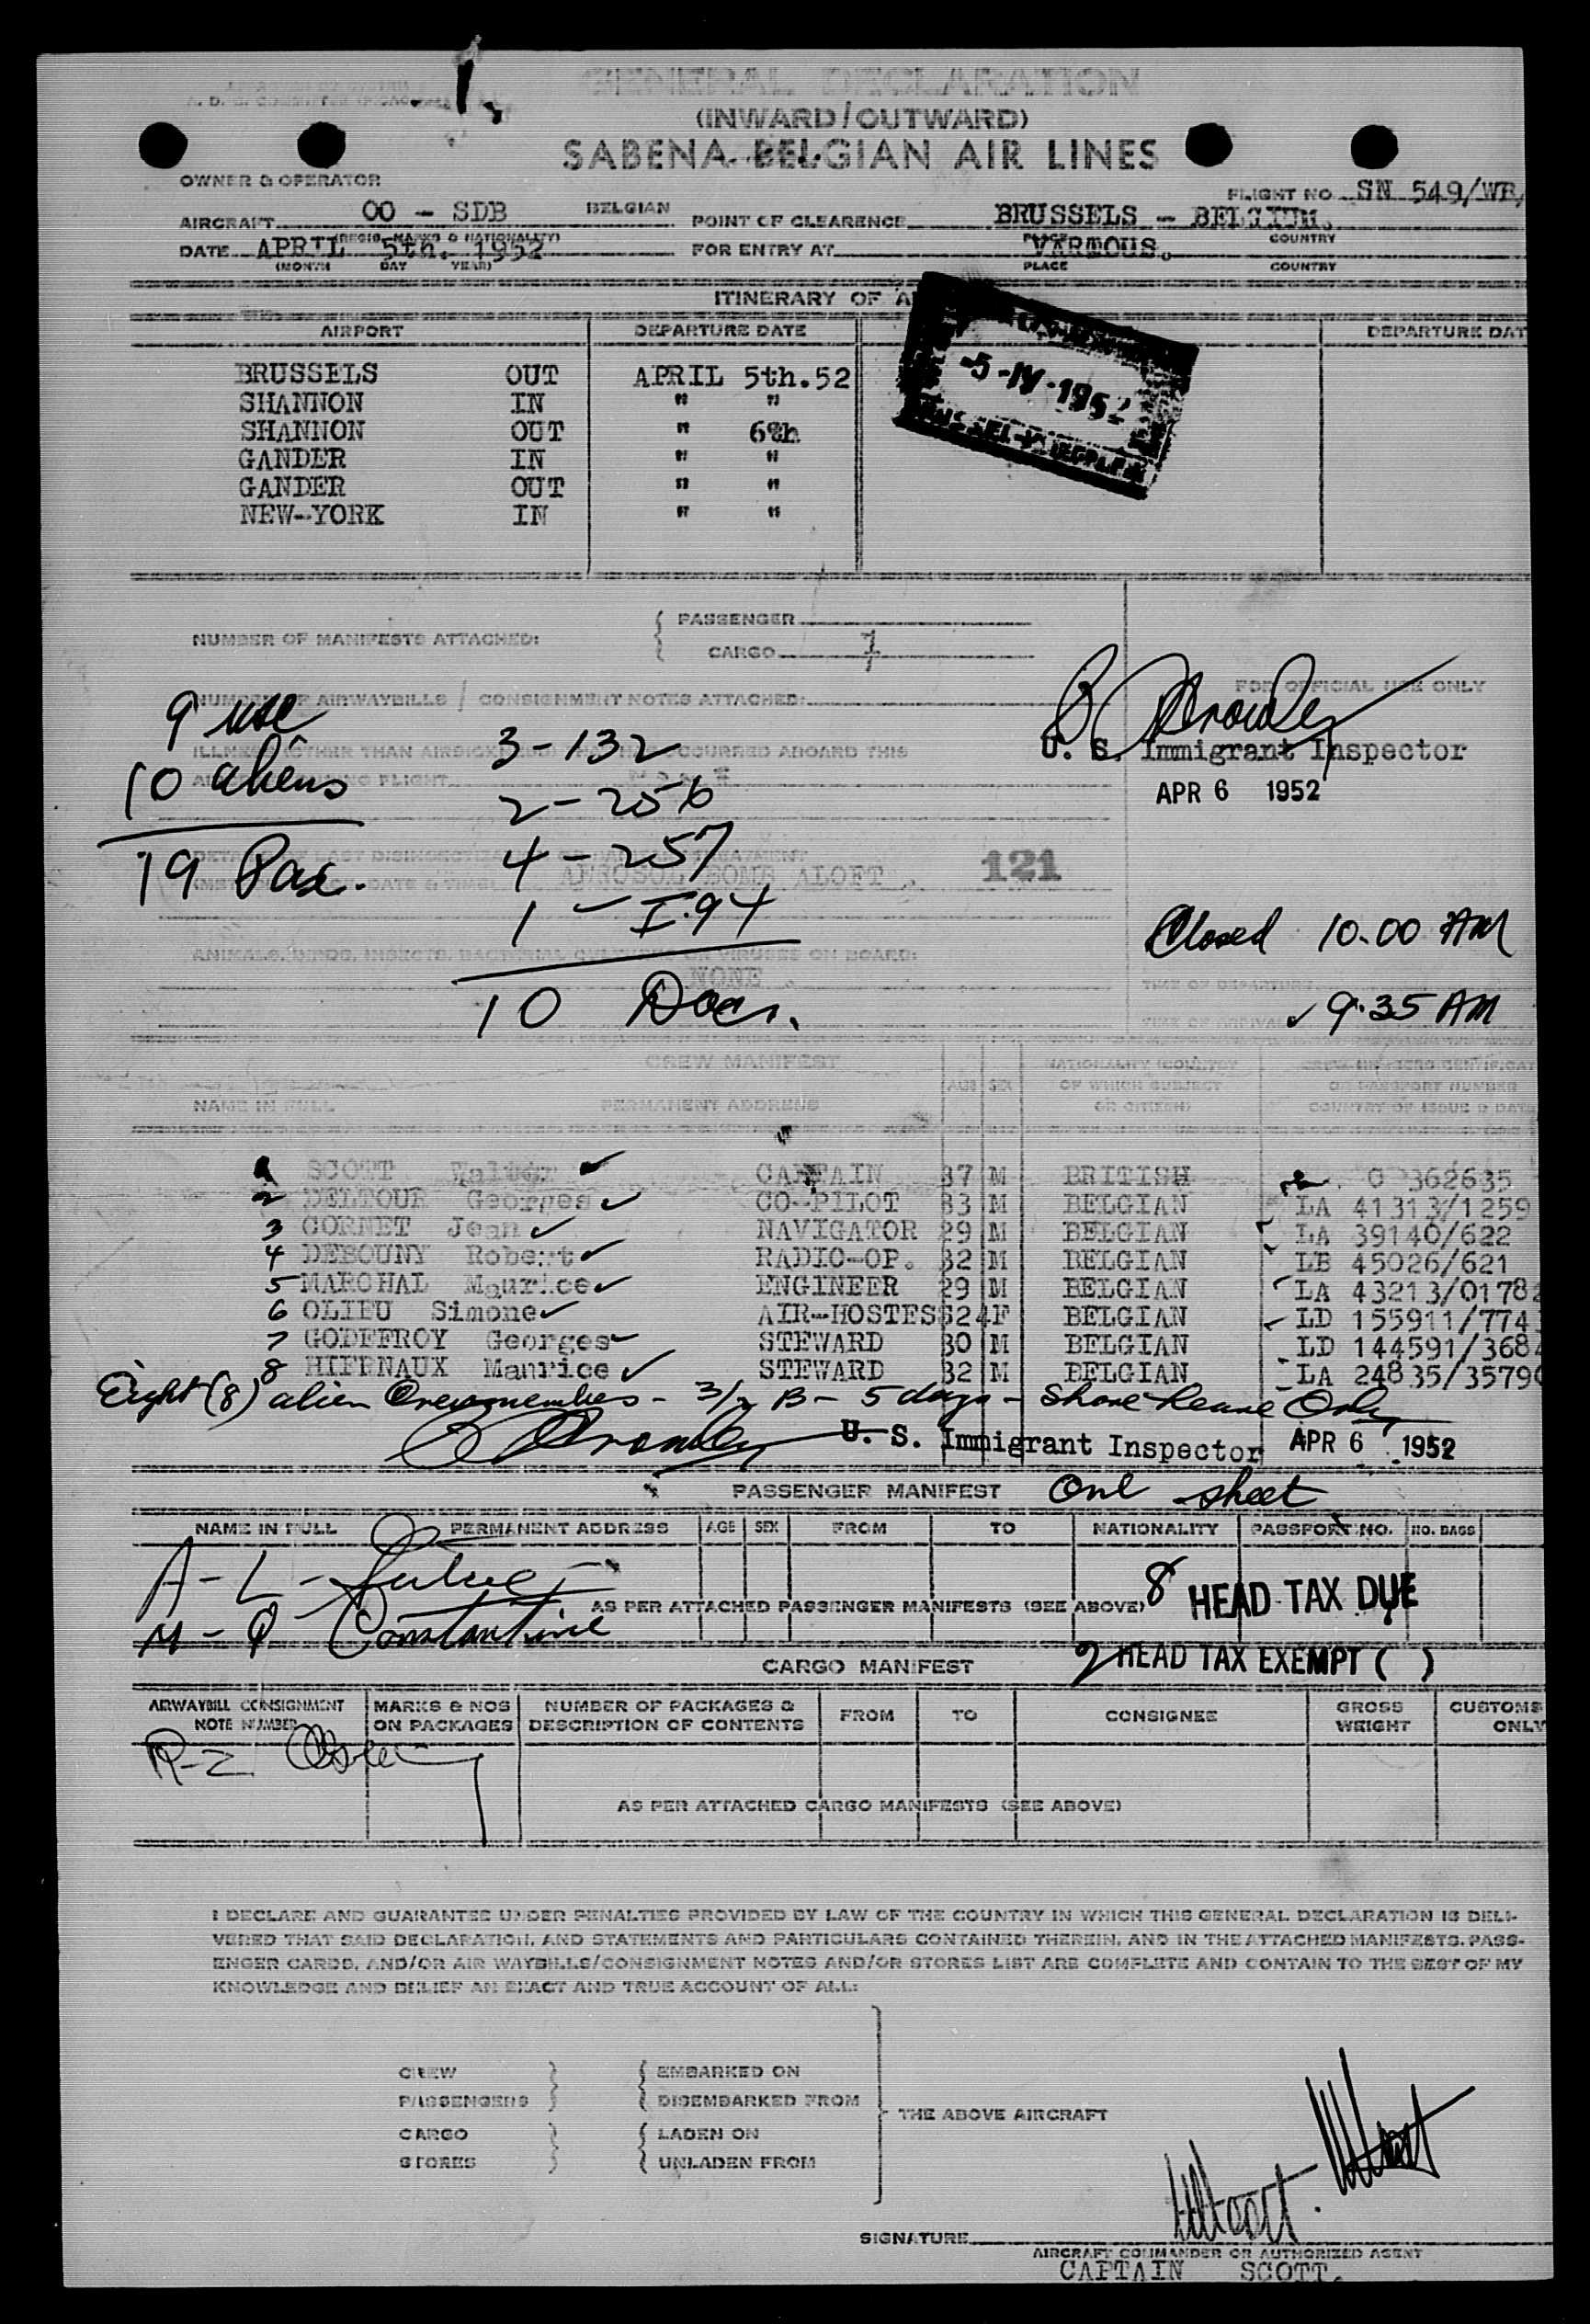 GENERAL DECLARATION
(INWARD/OUTWARD)
SABENA BELGIAN AIR LINES
OWNER & OPERATOR
FLIGHT NO. SN 549/WR,
AIRCRAFT OO - SDB BELGIAN POINT OF CLEARENCE BRUSSELS - BELGIUM.
(REGIS. MARKS & NATIONALITY) PLACE COUNTRY
DATE APRIL 5th. 1952 FOR ENTRY AT VARIOUS.
(MONTH DAY YEAR) PLACE COUNTRY
ITINERARY OF A
AIRPORT DEPARTURE DATE DEPARTURE DAT
-5-IV-1952
BRUSSELS OUT APRIL 5th.52
SHANNON IN " "
SHANNON OUT " 6th
GANDER IN " "
GANDER OUT " "
NEW-YORK IN " "
NUMBER OF MANIFESTS ATTACHED: PASSENGER
CARGO 1
FOR OFFICIAL USE ONLY
NUMBER OF AIRWAYBILLS / CONSIGNMENT NOTES ATTACHED:
9 USC
3-132
U. S. Immigrant Inspector
APR 6 1952
ILLNESS OTHER THAN AIRSICKNESS THAT HAS OCCURRED ABOARD THIS
10 aliens
2-256
19 Pax.
4-257
AEROSOL BOMB ALOFT. 121
1 - I.94
Closed 10.00 AM
ANIMALS, BIRDS, INSECTS, BACTERIAL CULTURES OR VIRUSES ON BOARD:
NONE
10 Docs.
TIME OF DEPARTURE
TIME OF ARRIVAL 9.35 AM
CREW MANIFEST
NAME IN FULL PERMANENT ADDRESS AGE SEX NATIONALITY (COUNTRY OF WHICH SUBJECT OR CITIZEN) OR PASSPORT NUMBER COUNTRY OF ISSUE & DATE
1 SCOTT Walter CAPTAIN 37 M BRITISH C 362635
2 DELTOUR Georges CO-PILOT 33 M BELGIAN LA 41313/1259
3 CORNET Jean NAVIGATOR 29 M BELGIAN LA 39140/622
4 DEBOUNY Robert RADIO-OP. 32 M BELGIAN LB 45026/621
5 MARCHAL Maurice ENGINEER 29 M BELGIAN LA 43213/0178
6 OLIEU Simone AIR-HOSTESS 24 F BELGIAN LD 155911/774
7 GODEFROY Georges STEWARD 30 M BELGIAN LD 144591/368
8 HIERNAUX Maurice STEWARD 32 M BELGIAN LA 24835/3579
Eight (8) alien Crewmembers - 3/2 B - 5 days - Shore Leave Only
U. S. Immigrant Inspector APR 6 1952
PASSENGER MANIFEST One sheet
NAME IN FULL PERMANENT ADDRESS AGE SEX FROM TO NATIONALITY PASSPORT NO. NO. BAGS
A - L -
AS PER ATTACHED PASSENGER MANIFESTS (SEE ABOVE) 8 HEAD TAX DUE
M - Q Constantine
CARGO MANIFEST 2 HEAD TAX EXEMPT ( )
AIRWAYBILL CONSIGNMENT NOTE NUMBER MARKS & NOS ON PACKAGES NUMBER OF PACKAGES & DESCRIPTION OF CONTENTS FROM TO CONSIGNEE GROSS WEIGHT CUSTOMS ONLY
R-Z
AS PER ATTACHED CARGO MANIFESTS (SEE ABOVE)
I DECLARE AND GUARANTEE UNDER PENALTIES PROVIDED BY LAW OF THE COUNTRY IN WHICH THIS GENERAL DECLARATION IS DELI-
VERED THAT SAID DECLARATION, AND STATEMENTS AND PARTICULARS CONTAINED THEREIN, AND IN THE ATTACHED MANIFESTS. PASS-
ENGER CARDS, AND/OR AIR WAYBILLS/CONSIGNMENT NOTES AND/OR STORES LIST ARE COMPLETE AND CONTAIN TO THE BEST OF MY
KNOWLEDGE AND BELIEF AN EXACT AND TRUE ACCOUNT OF ALL:
CREW EMBARKED ON
PASSENGERS DISEMBARKED FROM
THE ABOVE AIRCRAFT
CARGO LADEN ON
STORES UNLADEN FROM
SIGNATURE
AIRCRAFT COMMANDER OR AUTHORIZED AGENT
CAPTAIN SCOTT.